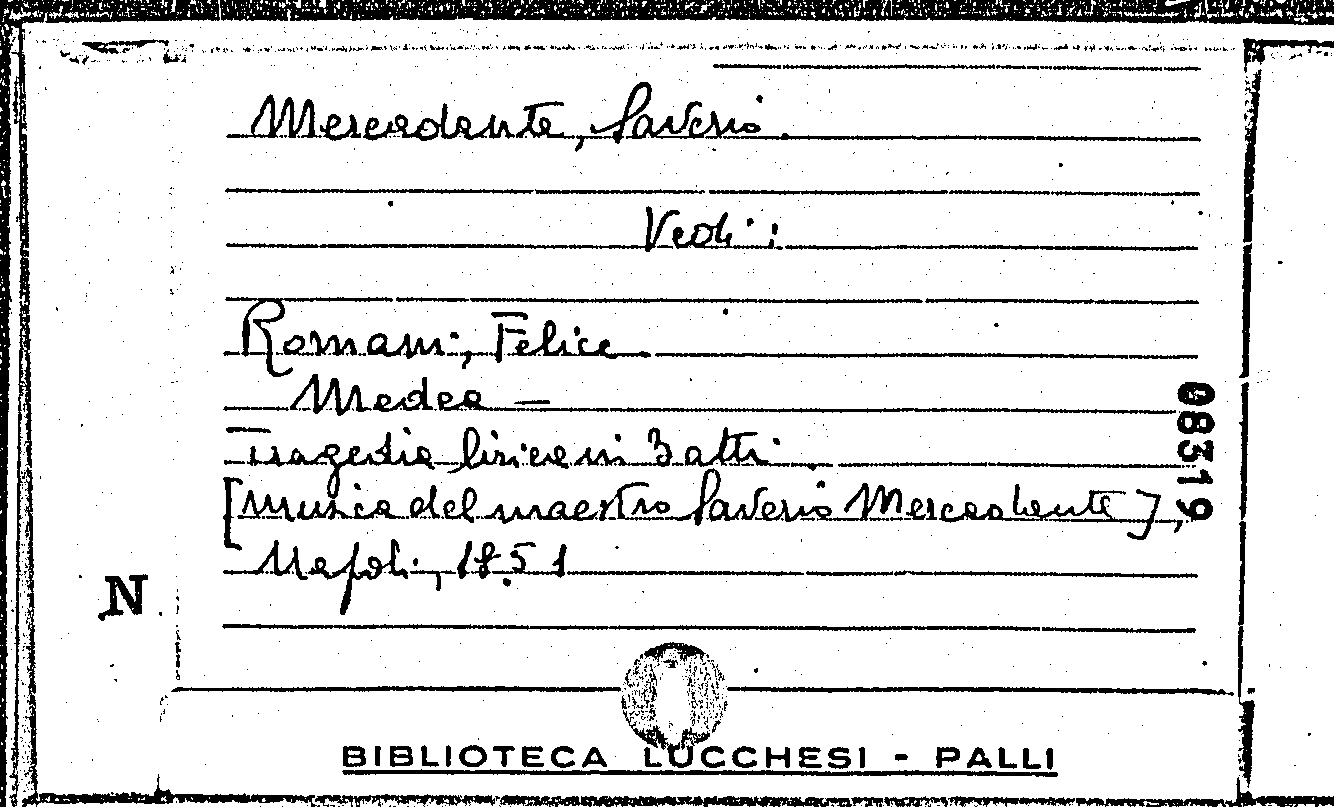 Mercadante, Saverio.
Vedi:
Romani, Felice
Medea —
Tragedia lirica in 3 atti.
[Musica del maestro Saverio Mercadante],
Napoli, 1851
08319
N
BIBLIOTECA LUCCHESI - PALLI